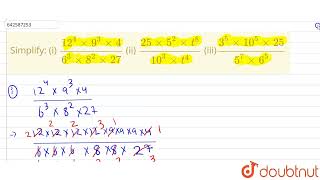 642587253
Simplify: (i) \frac{12^4 \times 9^3 \times 4}{6^3 \times 8^2 \times 27} (ii) \frac{25 \times 5^2 \times t^8}{10^3 \times t^4} (iii) \frac{3^5 \times 10^5 \times 25}{5^7 \times 6^5}
(i) 12^4 × 9^3 × 4
6^3 × 8^2 × 27
→ 12 × 12 × 12 × 12 × 9 × 9 × 9 × 4
6 × 6 × 6 × 8 × 8 × 27
doubtnut